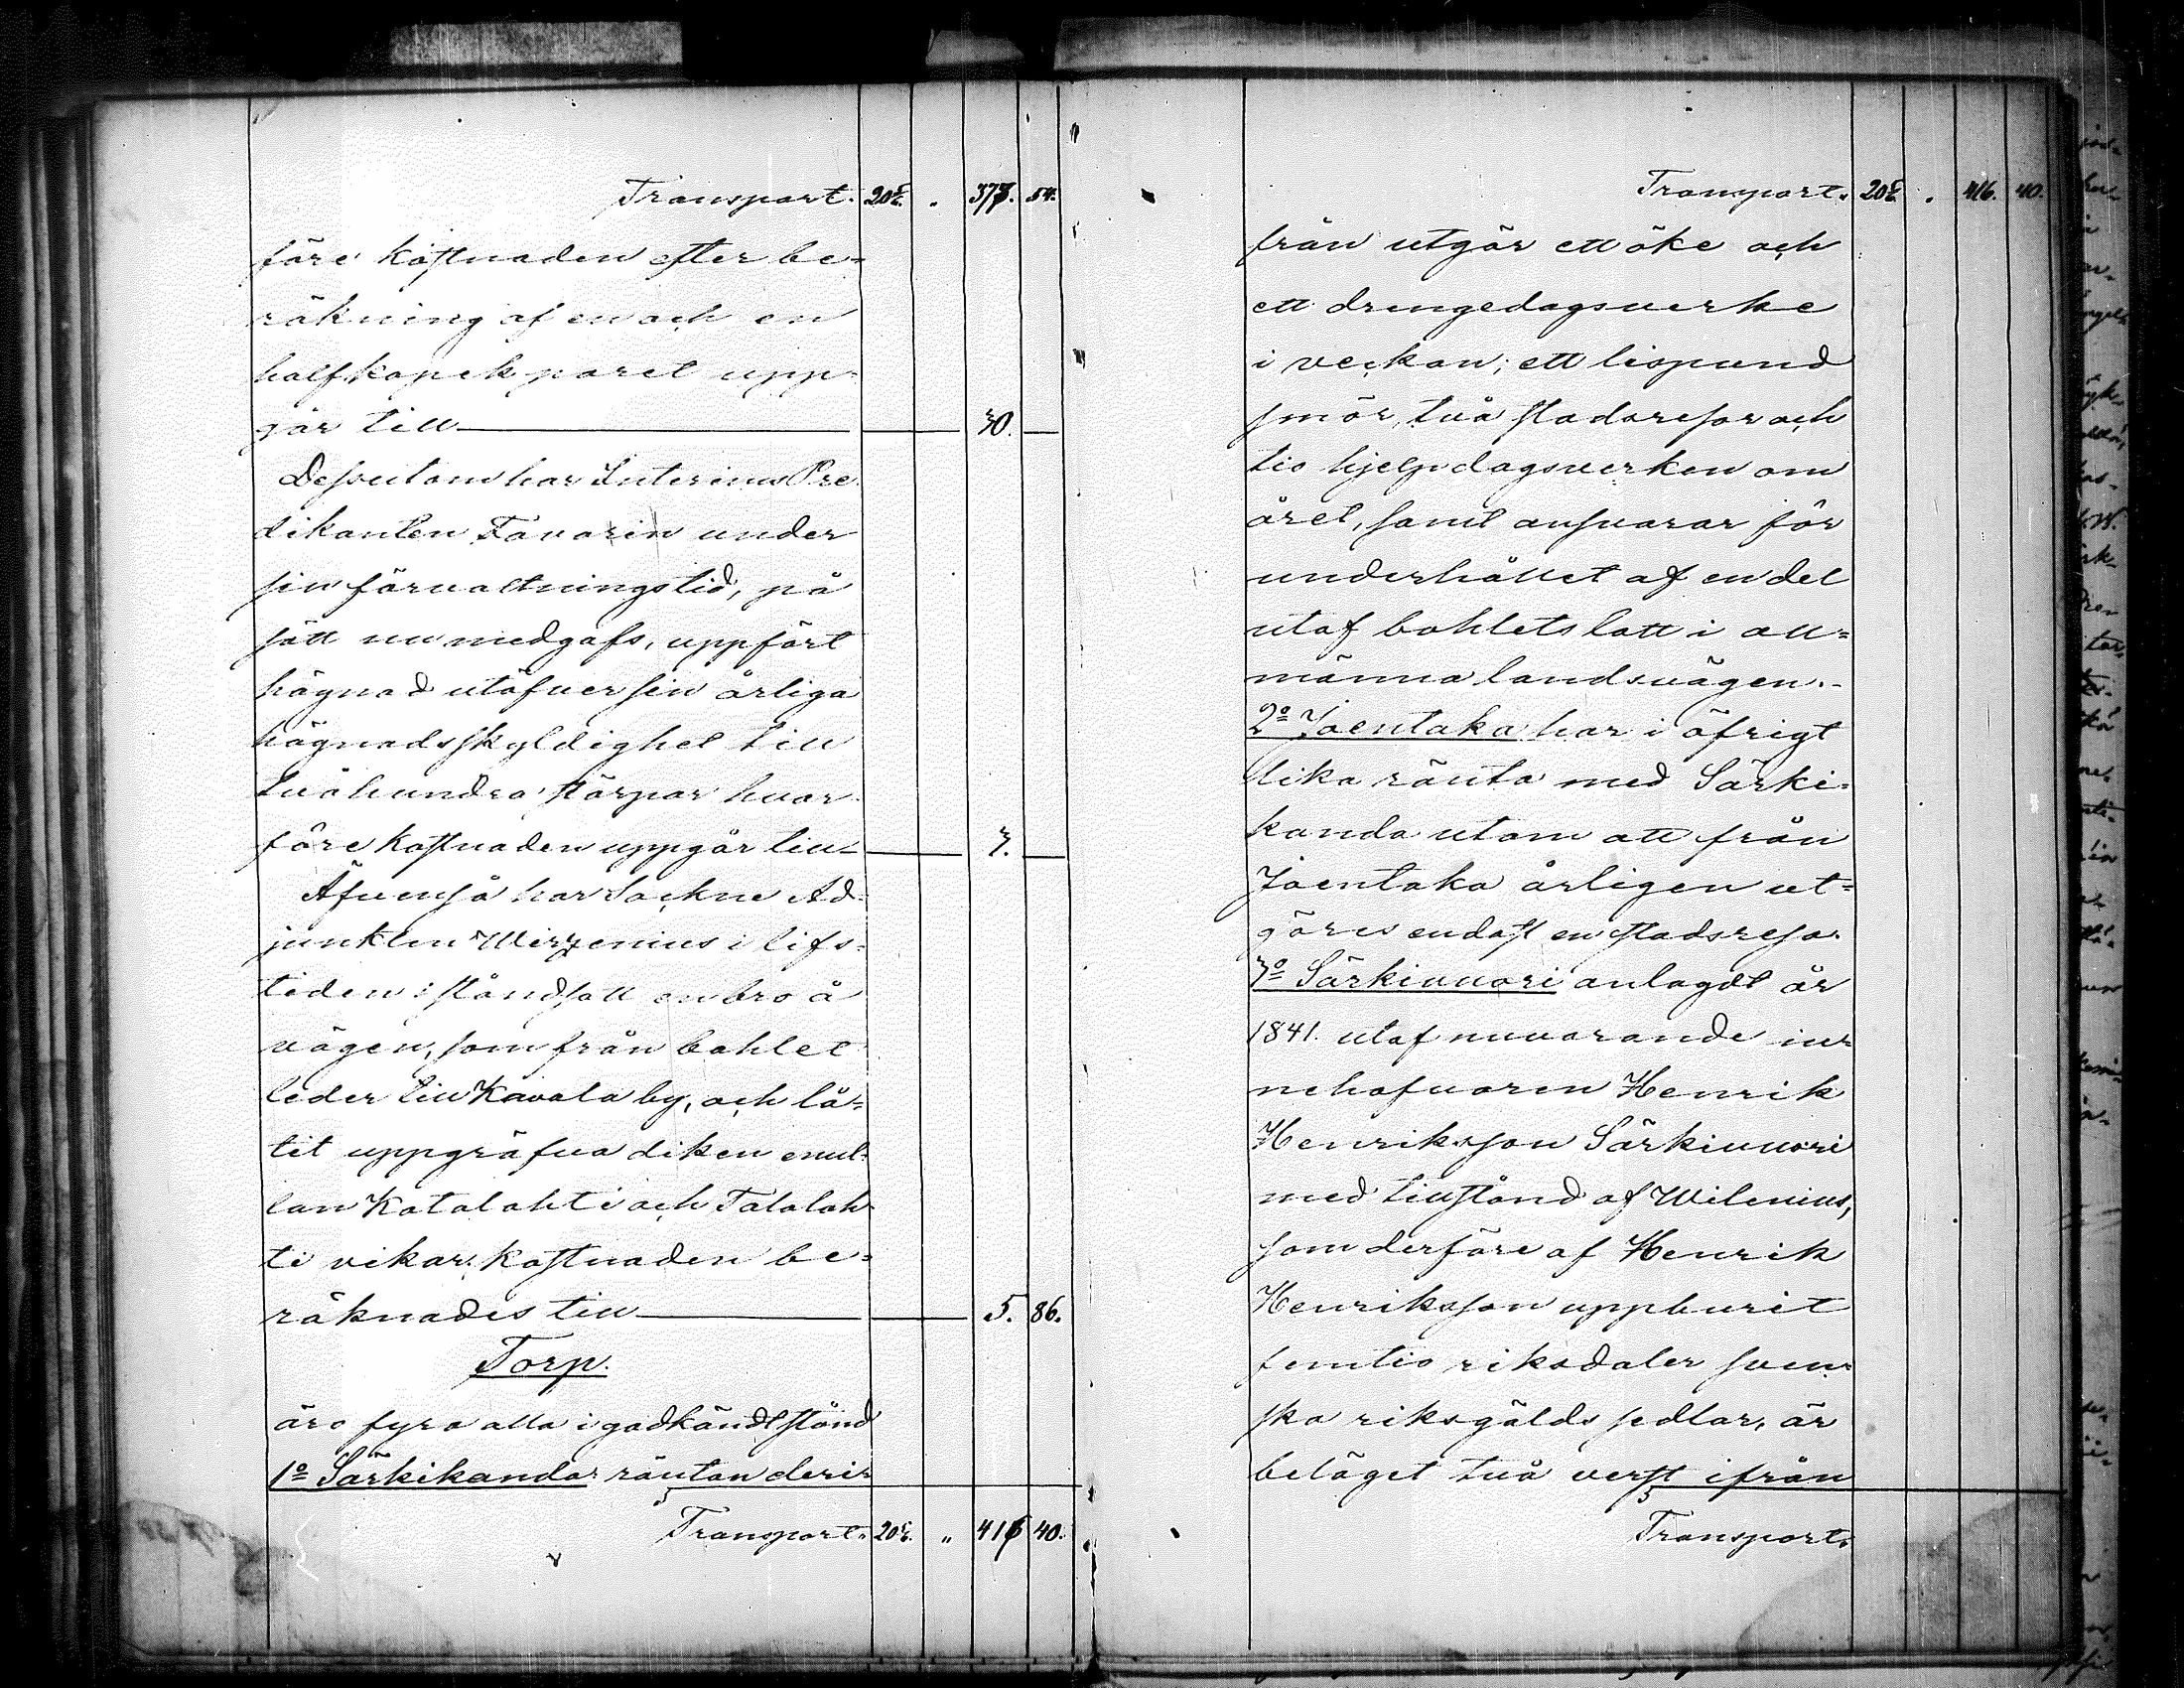 Transport. 20 R. „ 377. 54.
före kostnaden efter be=
räkning af en och en
half kopek paret upp=
går till 30.
Dessutom har Interims Pre
dikanten Favorin under
sin förvaltningstid, på
sätt nu medgafs, uppfört
hägnad utöfver sin årliga
hägnadsskyldighet till
tvåhundra störpar hvar
före kostnaden uppgår till 3.
Äfvenså har Sockne Ad=
junkten Wirzenius i lifs=
tiden iståndsatt en bro å
vägen, som från bohlet
leder till Kavala by, och lå=
tit uppgräfva diken emel=
lan Katalahti och Talalah
ti vikar, kostnaden be=
räknades till 5. 86.
Torp.
äro fyra alla i godkändt stånd
1o Särkikanda: räntan deri=
Transport. 20 R. „ 416 40.
Transport. 20 R. „ 416. 40.
från utgör ett öke och
ett drengedagsverke
i veckan; ett lispund
smör, två stadsresor och
tio hjelpdagsverken om
året, samt ansvarar för
underhållet af en del
utaf bohlets lott i all=
männa landsvägen.
2o Joentaka har i öfrigt
lika ränta med Särki=
kanda utom att från
Joentaka årligen ut=
göres endast en stadsresa.
3o Särkivuori anlagdt år
1841. utaf nuvarande in=
nehafvaren Henrik
Henriksson Särkivuori
med tillstånd af Wilenius,
som derföre af Henrik
Henriksson uppburit
femtio riksdaler sven=
ska riksgälds sedlar, är
beläget två verst ifrån
Transport.